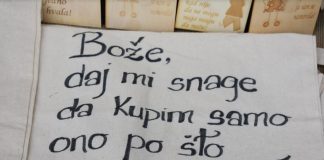 hvala!
Bože,
daj mi snage
da kupim samo
ono po što